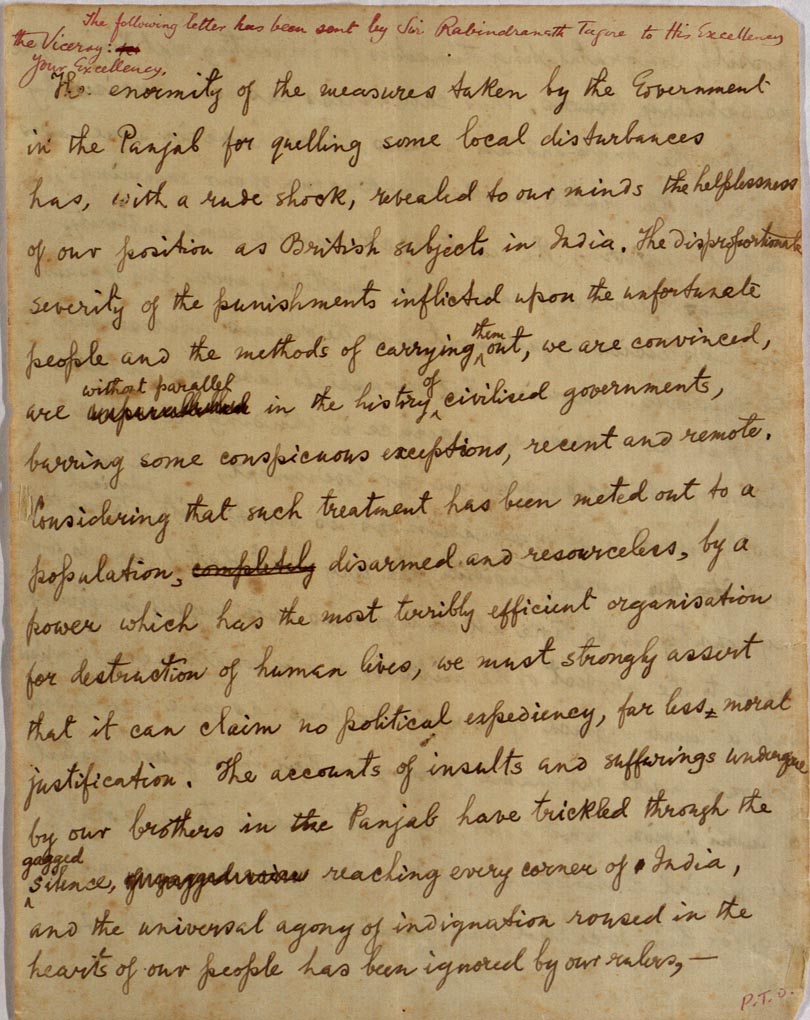 The following letter has been sent by Sir Rabindranath Tagore to His Excellency
the Viceroy:
Your Excellency,
The enormity of the measures taken by the Government
in the Panjab for quelling some local disturbances
has, with a rude shock, revealed to our minds the helplessness
of our position as British subjects in India. The disproportionate
severity of the punishments inflicted upon the unfortunate
people and the methods of carrying them out, we are convinced,
are without parallel in the history of civilised governments,
barring some conspicuous exceptions, recent and remote.
Considering that such treatment has been meted out to a
population, completely disarmed and resourceless, by a
power which has the most terribly efficient organisation
for destruction of human lives, we must strongly assert
that it can claim no political expediency, far less moral
justification. The accounts of insults and sufferings undergone
by our brothers in the Panjab have trickled through the
gagged silence, reaching every corner of India,
and the universal agony of indignation roused in the
hearts of our people has been ignored by our rulers,—
P.T.O.